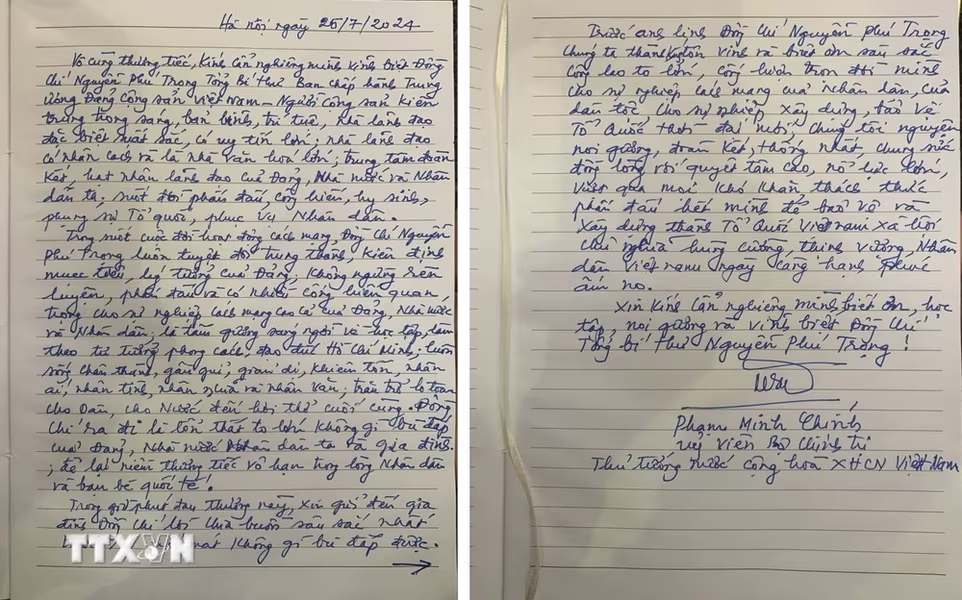 Hà nội, ngày 25/7/2024
Vô cùng thương tiếc, Kính cẩn nghiêng mình vĩnh biệt Đồng
Chí Nguyễn Phú Trọng Tổng Bí thư Ban chấp hành Trung
ương Đảng Cộng sản Việt Nam - Người cộng sản kiên
trung trong sáng, bản lĩnh, trí tuệ; nhà lãnh đạo
đặc biệt xuất sắc, có uy tín lớn; nhà lãnh đạo
có nhân cách và là nhà văn hoá lớn; trung tâm đoàn
kết, hạt nhân lãnh đạo của Đảng, Nhà nước và Nhân
dân ta; suốt đời phấn đấu, cống hiến, hy sinh,
phụng sự Tổ quốc, phục vụ Nhân dân.
Trong suốt cuộc đời hoạt động cách mạng, Đồng Chí Nguyễn
Phú Trọng luôn tuyệt đối trung thành, Kiên định
mục tiêu, lý tưởng của Đảng; Không ngừng rèn
luyện, phấn đấu và có nhiều cống hiến quan
trọng cho sự nghiệp cách mạng cao cả của Đảng, Nhà nước
và Nhân dân; là tấm gương sáng ngời về học tập, làm
theo tư tưởng, phong cách, đạo đức Hồ Chí Minh; luôn
sống chân thành, gần gũi, giản dị, khiêm tốn, nhân
ái, nhân tình, nhân nghĩa và nhân văn; trăn trở lo toan
cho Dân, cho Nước đến hơi thở cuối cùng. Đồng
Chí ra đi là tổn thất to lớn không gì bù đắp
của Đảng, Nhà nước, Nhân dân ta và gia đình
; để lại niềm thương tiếc vô hạn trong lòng Nhân dân
và bạn bè quốc tế!
Trong giờ phút đau thương này, xin gửi đến gia
đình Đồng Chí lời chia buồn sâu sắc nhất
mát không gì bù đắp được.
TTXVN
Trước anh linh Đồng Chí Nguyễn Phú Trọng
chúng ta thành kính tôn vinh và biết ơn sâu sắc
công lao to lớn, cống hiến trọn đời mình
cho sự nghiệp cách mạng của Nhân dân, của
dân tộc, cho sự nghiệp xây dựng, bảo vệ
Tổ quốc thời đại mới; chúng tôi nguyện
noi gương, đoàn kết, thống nhất, chung sức
đồng lòng với quyết tâm cao, nỗ lực lớn,
vượt qua mọi khó khăn, thách thức
phấn đấu hết mình để bảo vệ và
xây dựng thành Tổ Quốc Việt nam xã hội
chủ nghĩa hùng cường, thịnh vượng, Nhân
dân Việt nam ngày càng hạnh phúc
ấm no.
Xin Kính cẩn nghiêng mình biết ơn, học
tập, noi gương và vĩnh biệt Đồng Chí
Tổng bí thư Nguyễn Phú Trọng!
Phạm Minh Chính
Uỷ viên Bộ Chính trị
Thủ tướng nước Cộng hoà XHCN Việt Nam